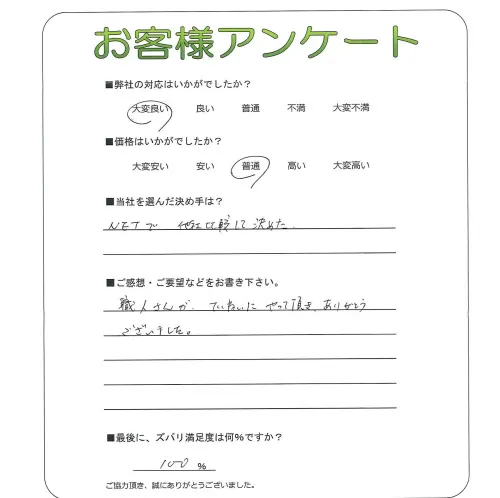 お客様アンケート
■弊社の対応はいかがでしたか？
大変良い 良い 普通 不満 大変不満
■価格はいかがでしたか？
大変安い 安い 普通 高い 大変高い
■当社を選んだ決め手は？
NETで 他社比較して決めた.
■ご感想・ご要望などをお書き下さい。
職人さんが、ていねいに やって頂き、ありがとう
ございました。
■最後に、ズバリ満足度は何％ですか？
100 %
ご協力頂き、誠にありがとうございました。